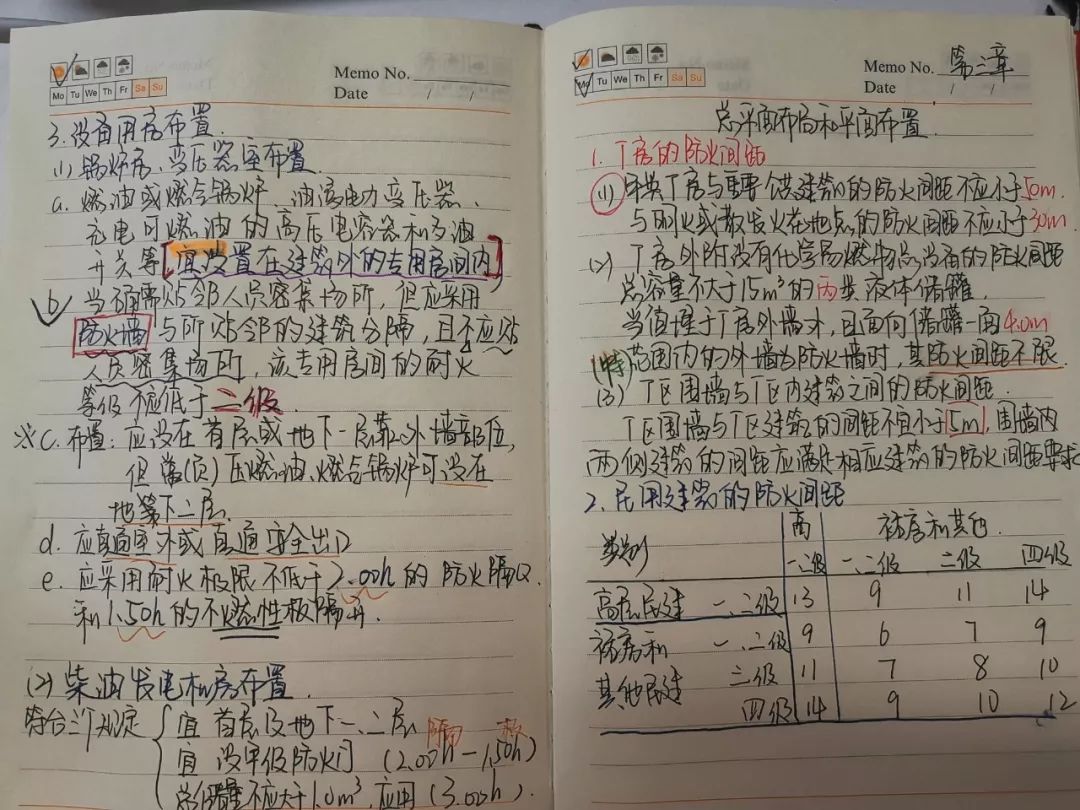 Memo No.
Mo Tu We Th Fr Sa Su
Date / /
3.设备用房布置.
(1)锅炉房、变压器室布置.
a.燃油或燃气锅炉、油浸电力变压器、
充电可燃油的高压电容器和多油
开关等[宜设置在建筑外的专用房间内]
b 当确需贴邻人员密集场所,但应采用
防火墙与所贴邻的建筑分隔,且不应贴
人员密集场所,该专用房间的耐火
等级不应低于二级.
※C.布置:应设在首层或地下一层靠外墙部位,
但常(负)压燃油、燃气锅炉可设在
地下二层.
d.应直通室外或直通安全出口
e.应采用耐火极限不低于2.00h的防火隔
和1.50h的不燃性板隔开.
(2)柴油发电机房布置.
符合三个规定
宜首层及地下一、二层 隔 板
宜设甲级防火门(2.00h-1.50h)
总储量不应大于1.0m³,应用(3.00h).
Memo No. 第二章
Tu We Th Fr Sa Su
Date / /
总平面布局和平面布置.
1.厂房的防火间距
(1)甲类厂房与重要公共建筑的防火间距不应小于50m.
与明火或散发火花地点的防火间距不应小于30m
(2)厂房外附设有化学易燃物品设备的防火间距
总容量不大于15m³的丙类液体储罐.
当直埋于厂房外墙外,且面向储罐一面4.0m
(特)范围内的外墙为防火墙时,其防火间距不限.
(3)厂区围墙与厂区内建筑之间的防火间距.
厂区围墙与厂区建筑的间距不宜小于5m,围墙内
两侧建筑的间距应满足相应建筑的防火间距要求
2.民用建筑的防火间距
高 裙房和其他.
类别 一、二级 一、二级 三级 四级
高层民建 一、二级 13 9 11 14
裙房和 一、二级 9 6 7 9
其他民建 三级 11 7 8 10
四级 14 9 10 12